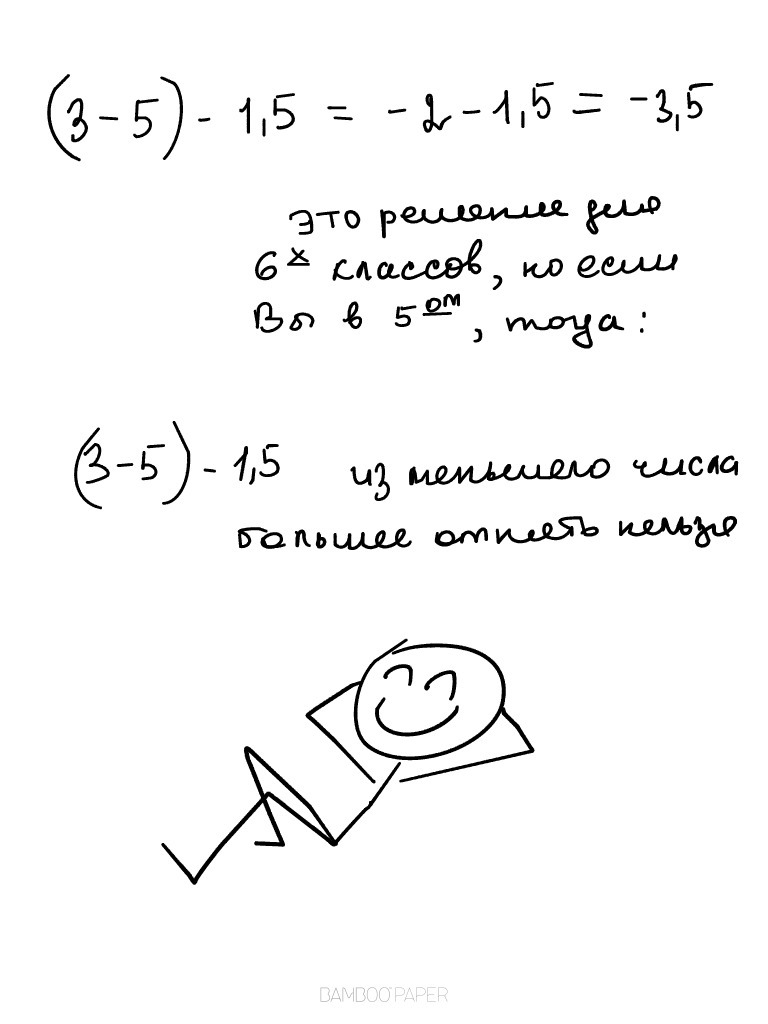 (3-5)- 1,5 = -2-1,5 = -3,5
это решение для
6х классов, но если
Вы в 5ом, тогда:
(3-5)- 1,5 из меньшего числа
большее отнять нельзя
BAMBOO PAPER